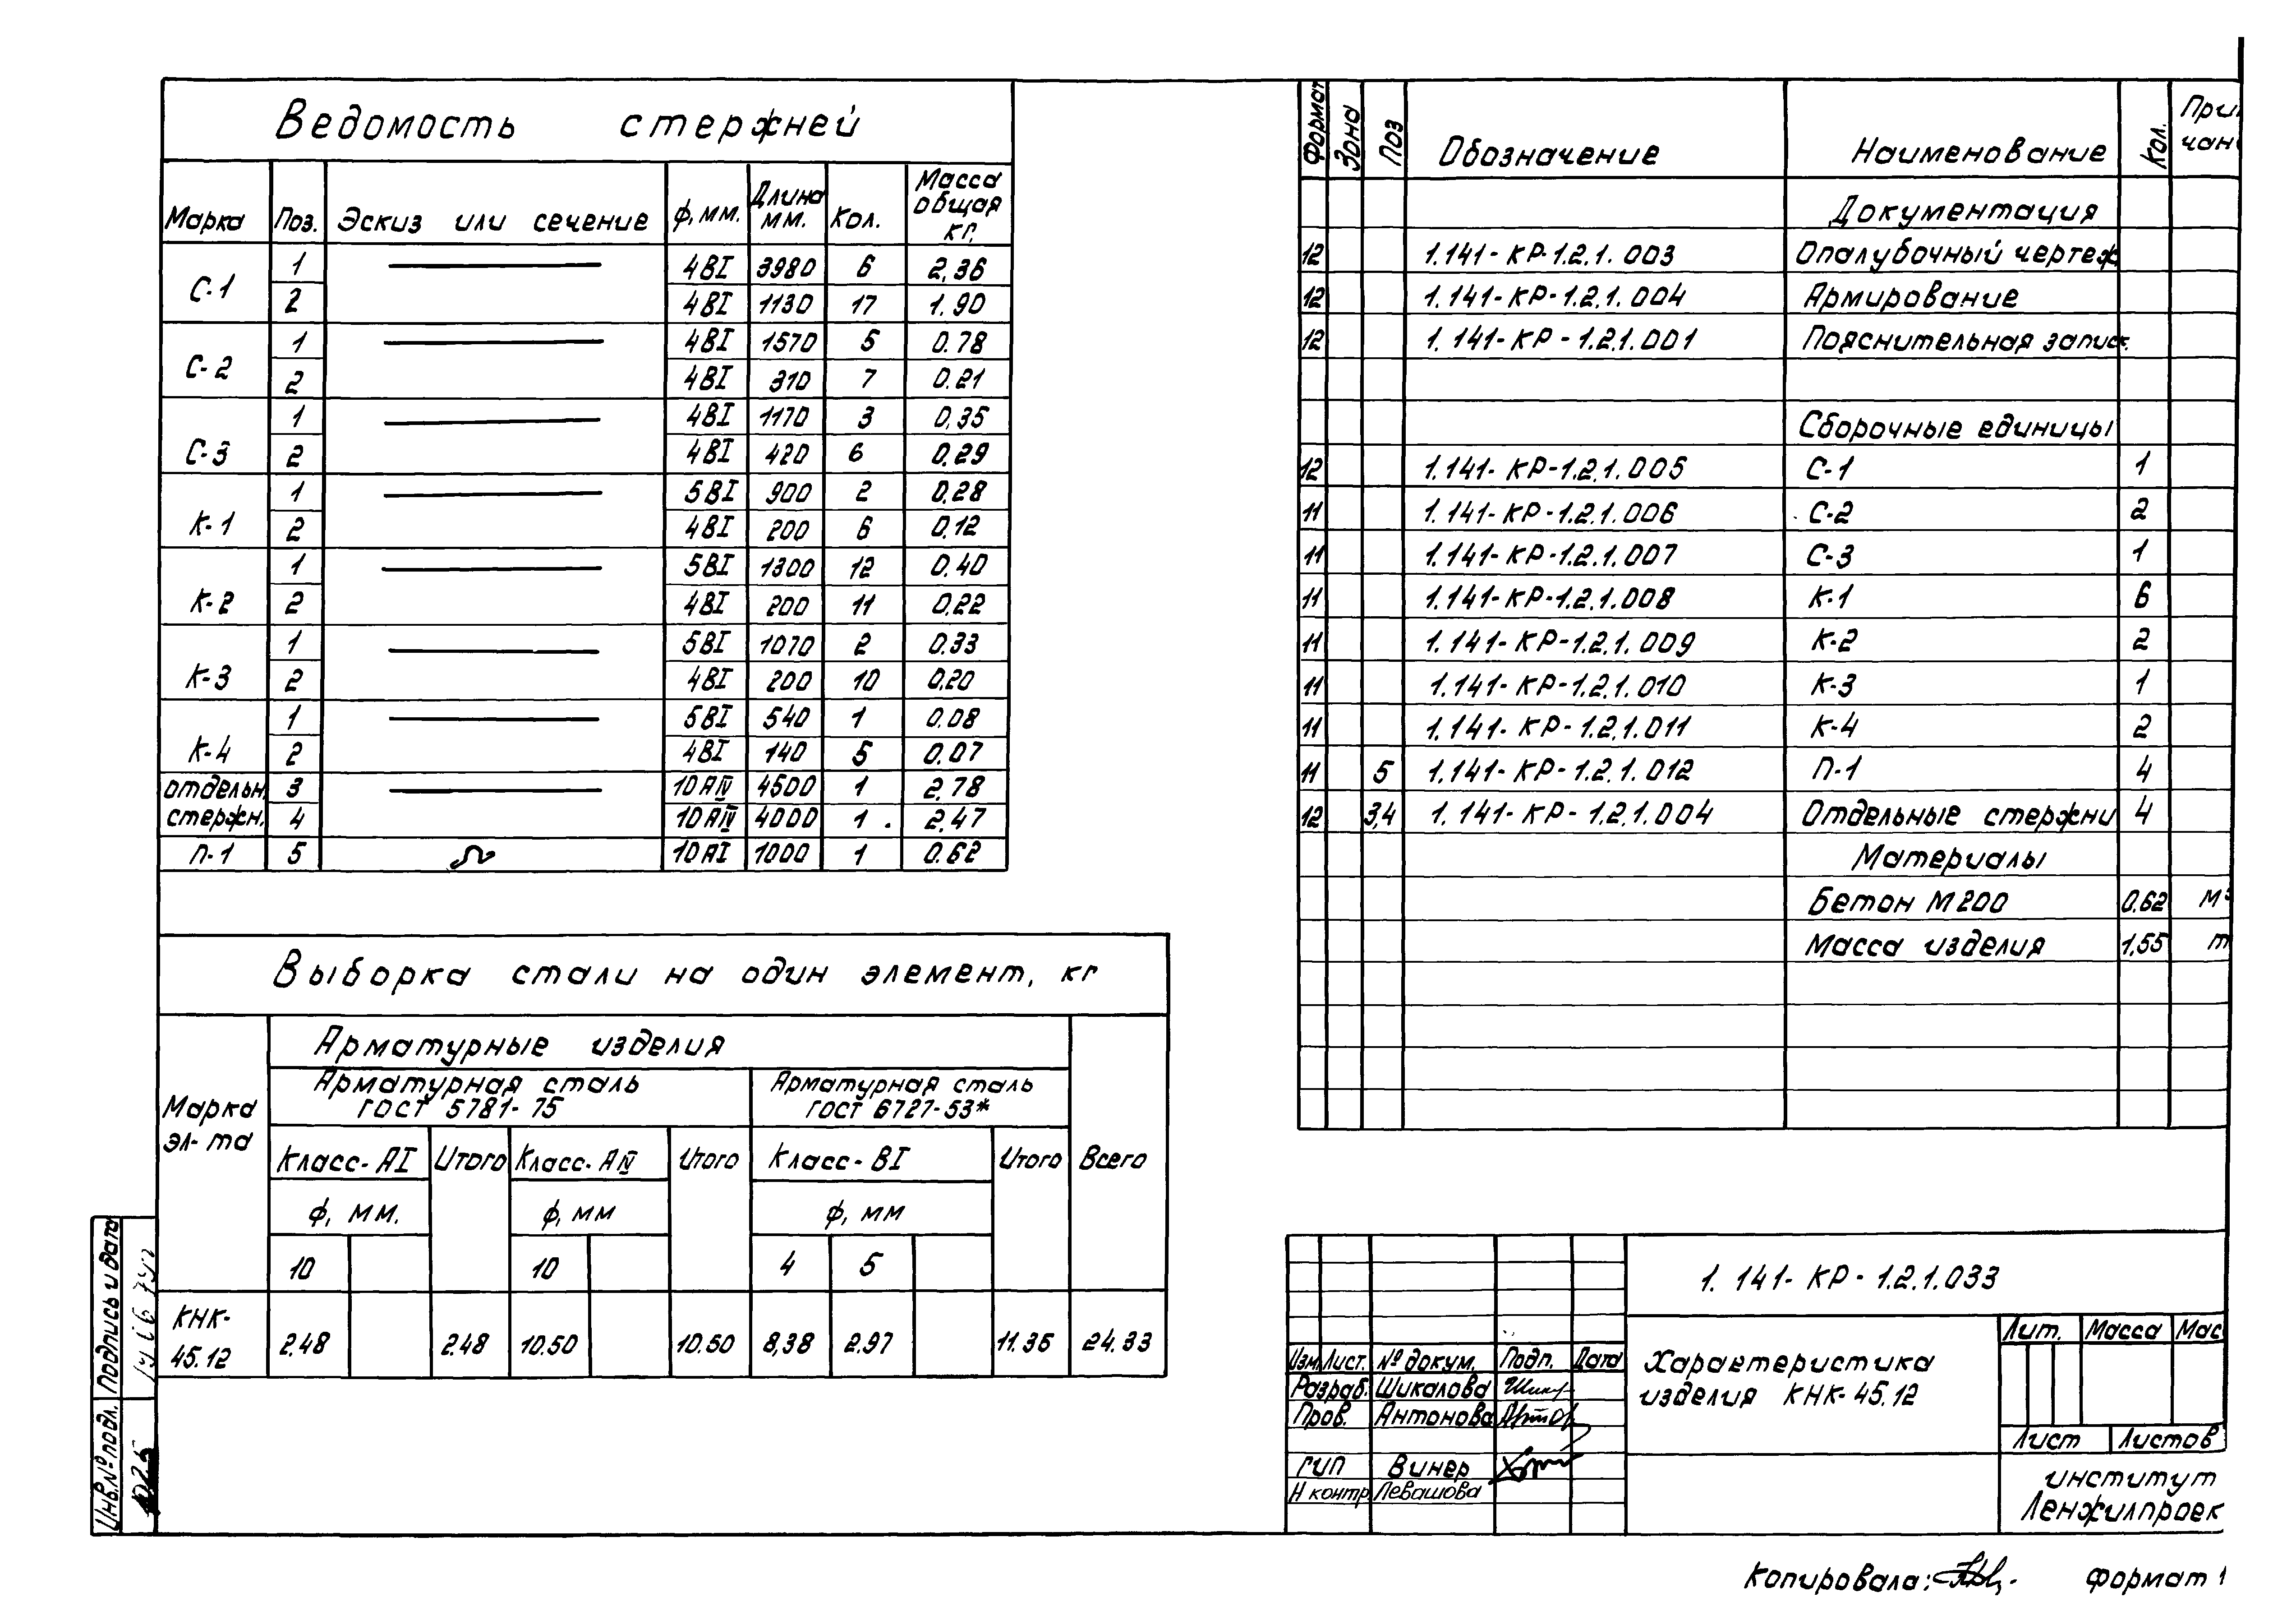 Ведомость стержней
Марка Поз. Эскиз или сечение ф,мм. Длина мм. Кол. Масса общая кг.
С-1 1 4ВI 3980 6 2,36
2 4ВI 1130 17 1.90
С-2 1 4ВI 1570 5 0.78
2 4ВI 310 7 0.21
С-3 1 4ВI 1170 3 0,35
2 4ВI 420 6 0.29
К-1 1 5ВI 900 2 0.28
2 4ВI 200 6 0.12
К-2 1 5ВI 1300 12 0.40
2 4ВI 200 11 0.22
К-3 1 5ВI 1070 2 0.33
2 4ВI 200 10 0.20
К-4 1 5ВI 540 1 0.08
2 4ВI 140 5 0.07
отдельн. 3 10АIV 4500 1 2.78
стержн. 4 10АIV 4000 1 2.47
П-1 5 10АI 1000 1 0.62
Выборка стали на один элемент, кг
Марка эл-та
Арматурные изделия
Арматурная сталь
ГОСТ 5781-75
Арматурная сталь
ГОСТ 6727-53*
Класс-АI Итого Класс-АIV Итого Класс-ВI Итого Всего
ф, мм. ф, мм ф, мм
10 10 4 5
КНК-45.12 2,48 2.48 10.50 10.50 8,38 2.97 11.35 24.33
Формат Зона Поз Обозначение Наименование Кол. При чан
Документация
12 1.141-КР-1.2.1.003 Опалубочный чертеж
12 1.141-КР-1.2.1.004 Армирование
12 1.141-КР-1.2.1.001 Пояснительная запис
Сборочные единицы
12 1.141-КР-1.2.1.005 С-1 1
11 1.141-КР-1.2.1.006 С-2 2
11 1.141-КР-1.2.1.007 С-3 1
11 1.141-КР-1.2.1.008 К-1 6
11 1.141-КР-1.2.1.009 К-2 2
11 1.141-КР-1.2.1.010 К-3 1
11 1.141-КР-1.2.1.011 К-4 2
11 5 1.141-КР-1.2.1.012 П-1 4
12 3,4 1.141-КР-1.2.1.004 Отдельные стержни 4
Материалы
Бетон М200 0.62 м³
Масса изделия 1,55 т
1.141-КР-1.2.1.033
Изм. Лист. № докум. Подп. Дата
Разраб. Шикалова
Пров. Антонова
ГИП Винер
Н контр Левашова
Характеристика
изделия КНК-45.12
Лит. Масса Мас
Лист Листов
институт
Ленжилпроек
Подпись и дата
Инв.№ подл.
Копировала:
формат 1